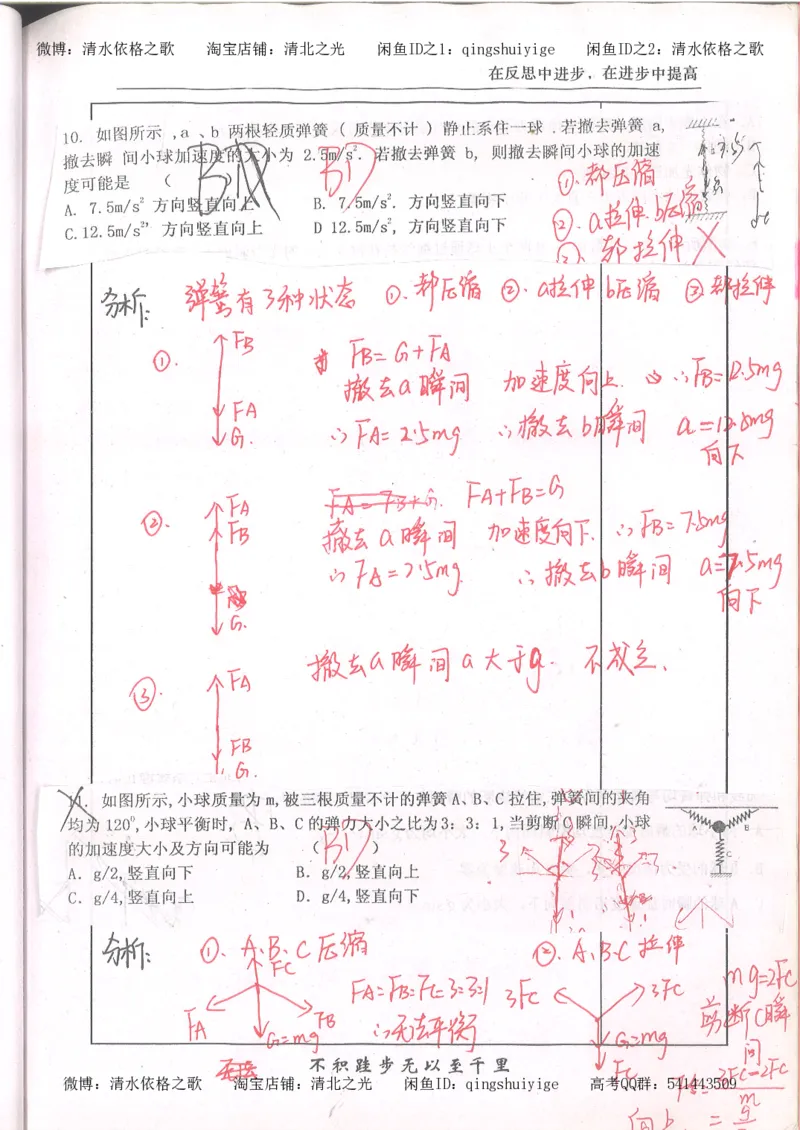 微博：清水依格之歌 淘宝店铺：清北之光 闲鱼ID之1：qingshuiyige 闲鱼ID之2：清水依格之歌
在反思中进步，在进步中提高
10. 如图所示 ,a 、b 两根轻质弹簧 ( 质量不计 ) 静止系住一球 .若撤去弹簧 a,
撤去瞬 间小球加速度的大小为 2.5m/s². 若撤去弹簧 b, 则撤去瞬间小球的加速
度可能是 ( BD )
A. 7.5m/s² 方向竖直向上 B. 7.5m/s². 方向竖直向下
C.12.5m/s², 方向竖直向上 D 12.5m/s², 方向竖直向下
①.都压缩
②.a拉伸.b压缩
③.都拉伸 X
分析: 弹簧有3种状态 ①.都压缩 ②.a拉伸b压缩 ③都拉伸
①. FB
FA
G.
FB=G+FA
撤去a瞬间 加速度向上. ∴FB=12.5mg
∴FA=2.5mg ∴撤去b瞬间 a=12.5mg
向下
②. FA
FB
G.
FA+FB=G
撤去a瞬间 加速度向下. ∴FB=7.5mg
∴FA=2.5mg. ∴撤去b瞬间 a=7.5mg
向下
③. FA
FB
G.
撤去a瞬间a大于g. 不成立.
11. 如图所示,小球质量为 m,被三根质量不计的弹簧 A、B、C 拉住,弹簧间的夹角
均为 120⁰,小球平衡时, A、B、C 的弹力大小之比为 3：3：1,当剪断 C 瞬间,小球
的加速度大小及方向可能为 ( BD )
A. g/2,竖直向下 B. g/2,竖直向上
C. g/4,竖直向上 D. g/4,竖直向下
A B
C
分析: ①. A、B、C压缩 ②. A、B、C拉伸
FC
FA FB
G=mg
FA=FB=FC=3:3:1
∴无法平衡
3FC 3FC
G=mg
FC
mg=2FC
剪断C瞬
间
不积跬步无以至千里
微博：清水依格之歌 淘宝店铺：清北之光 闲鱼ID：qingshuiyige 高考QQ群：541443509